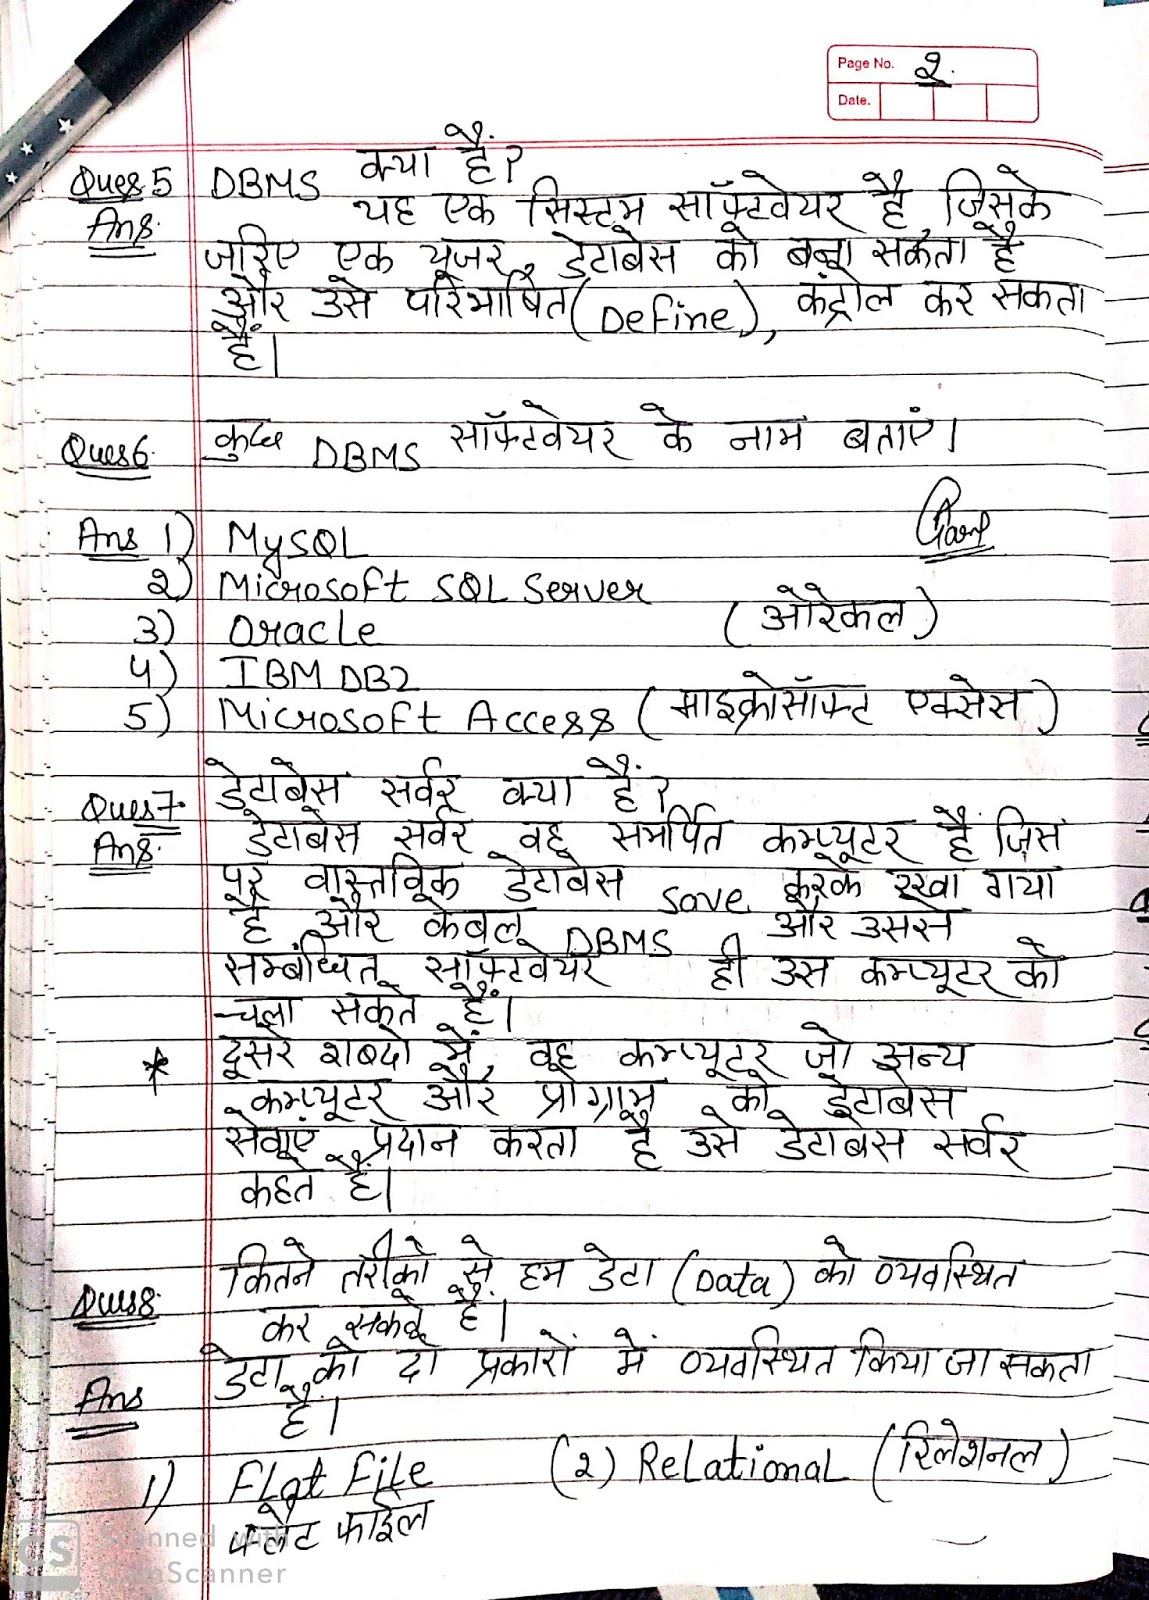 Page No. 2.
Date.
Ques 5 DBMS क्या हैं?
Ans. यह एक सिस्टम सॉफ़्टवेयर है, जिसके
जरिए एक यूजर, डेटाबेस को बना सकता है
और उसे परिभाषित (Define), कंट्रोल कर सकता
हैं।
Ques 6. कुछ DBMS सॉफ़्टवेयर के नाम बताएं।
Ans 1) MySQL
2) Microsoft SQL Server
3) Oracle (ओरेकल)
4) IBM DB2
5) Microsoft Access (माइक्रोसॉफ्ट एक्सेस)
Ques 7. डेटाबेस सर्वर क्या हैं?
Ans. डेटाबेस सर्वर वह समर्पित कम्प्यूटर हैं जिस
पर वास्तविक डेटाबेस save करके रखा गया
है और केबल DBMS और उससे
सम्बंधित सॉफ़्टवेयर ही उस कम्प्यूटर को
चला सकते हैं।
* दूसरे शबदो में, वह कम्प्यूटर जो अन्य
कम्प्यूटर और प्रोग्राम को डेटाबेस
सेवाएं प्रदान करता है उसे डेटाबेस सर्वर
कहते हैं।
Ques 8. कितने तरीको से हम डेटा (Data) को व्यवस्थित
कर सकते हैं।
Ans डेटा को दो प्रकारों में व्यवस्थित किया जा सकता
हैं।
1) Flat File (2) Relational (रिलेशनल)
फ्लेट फाईल
CS Scanned with
CamScanner